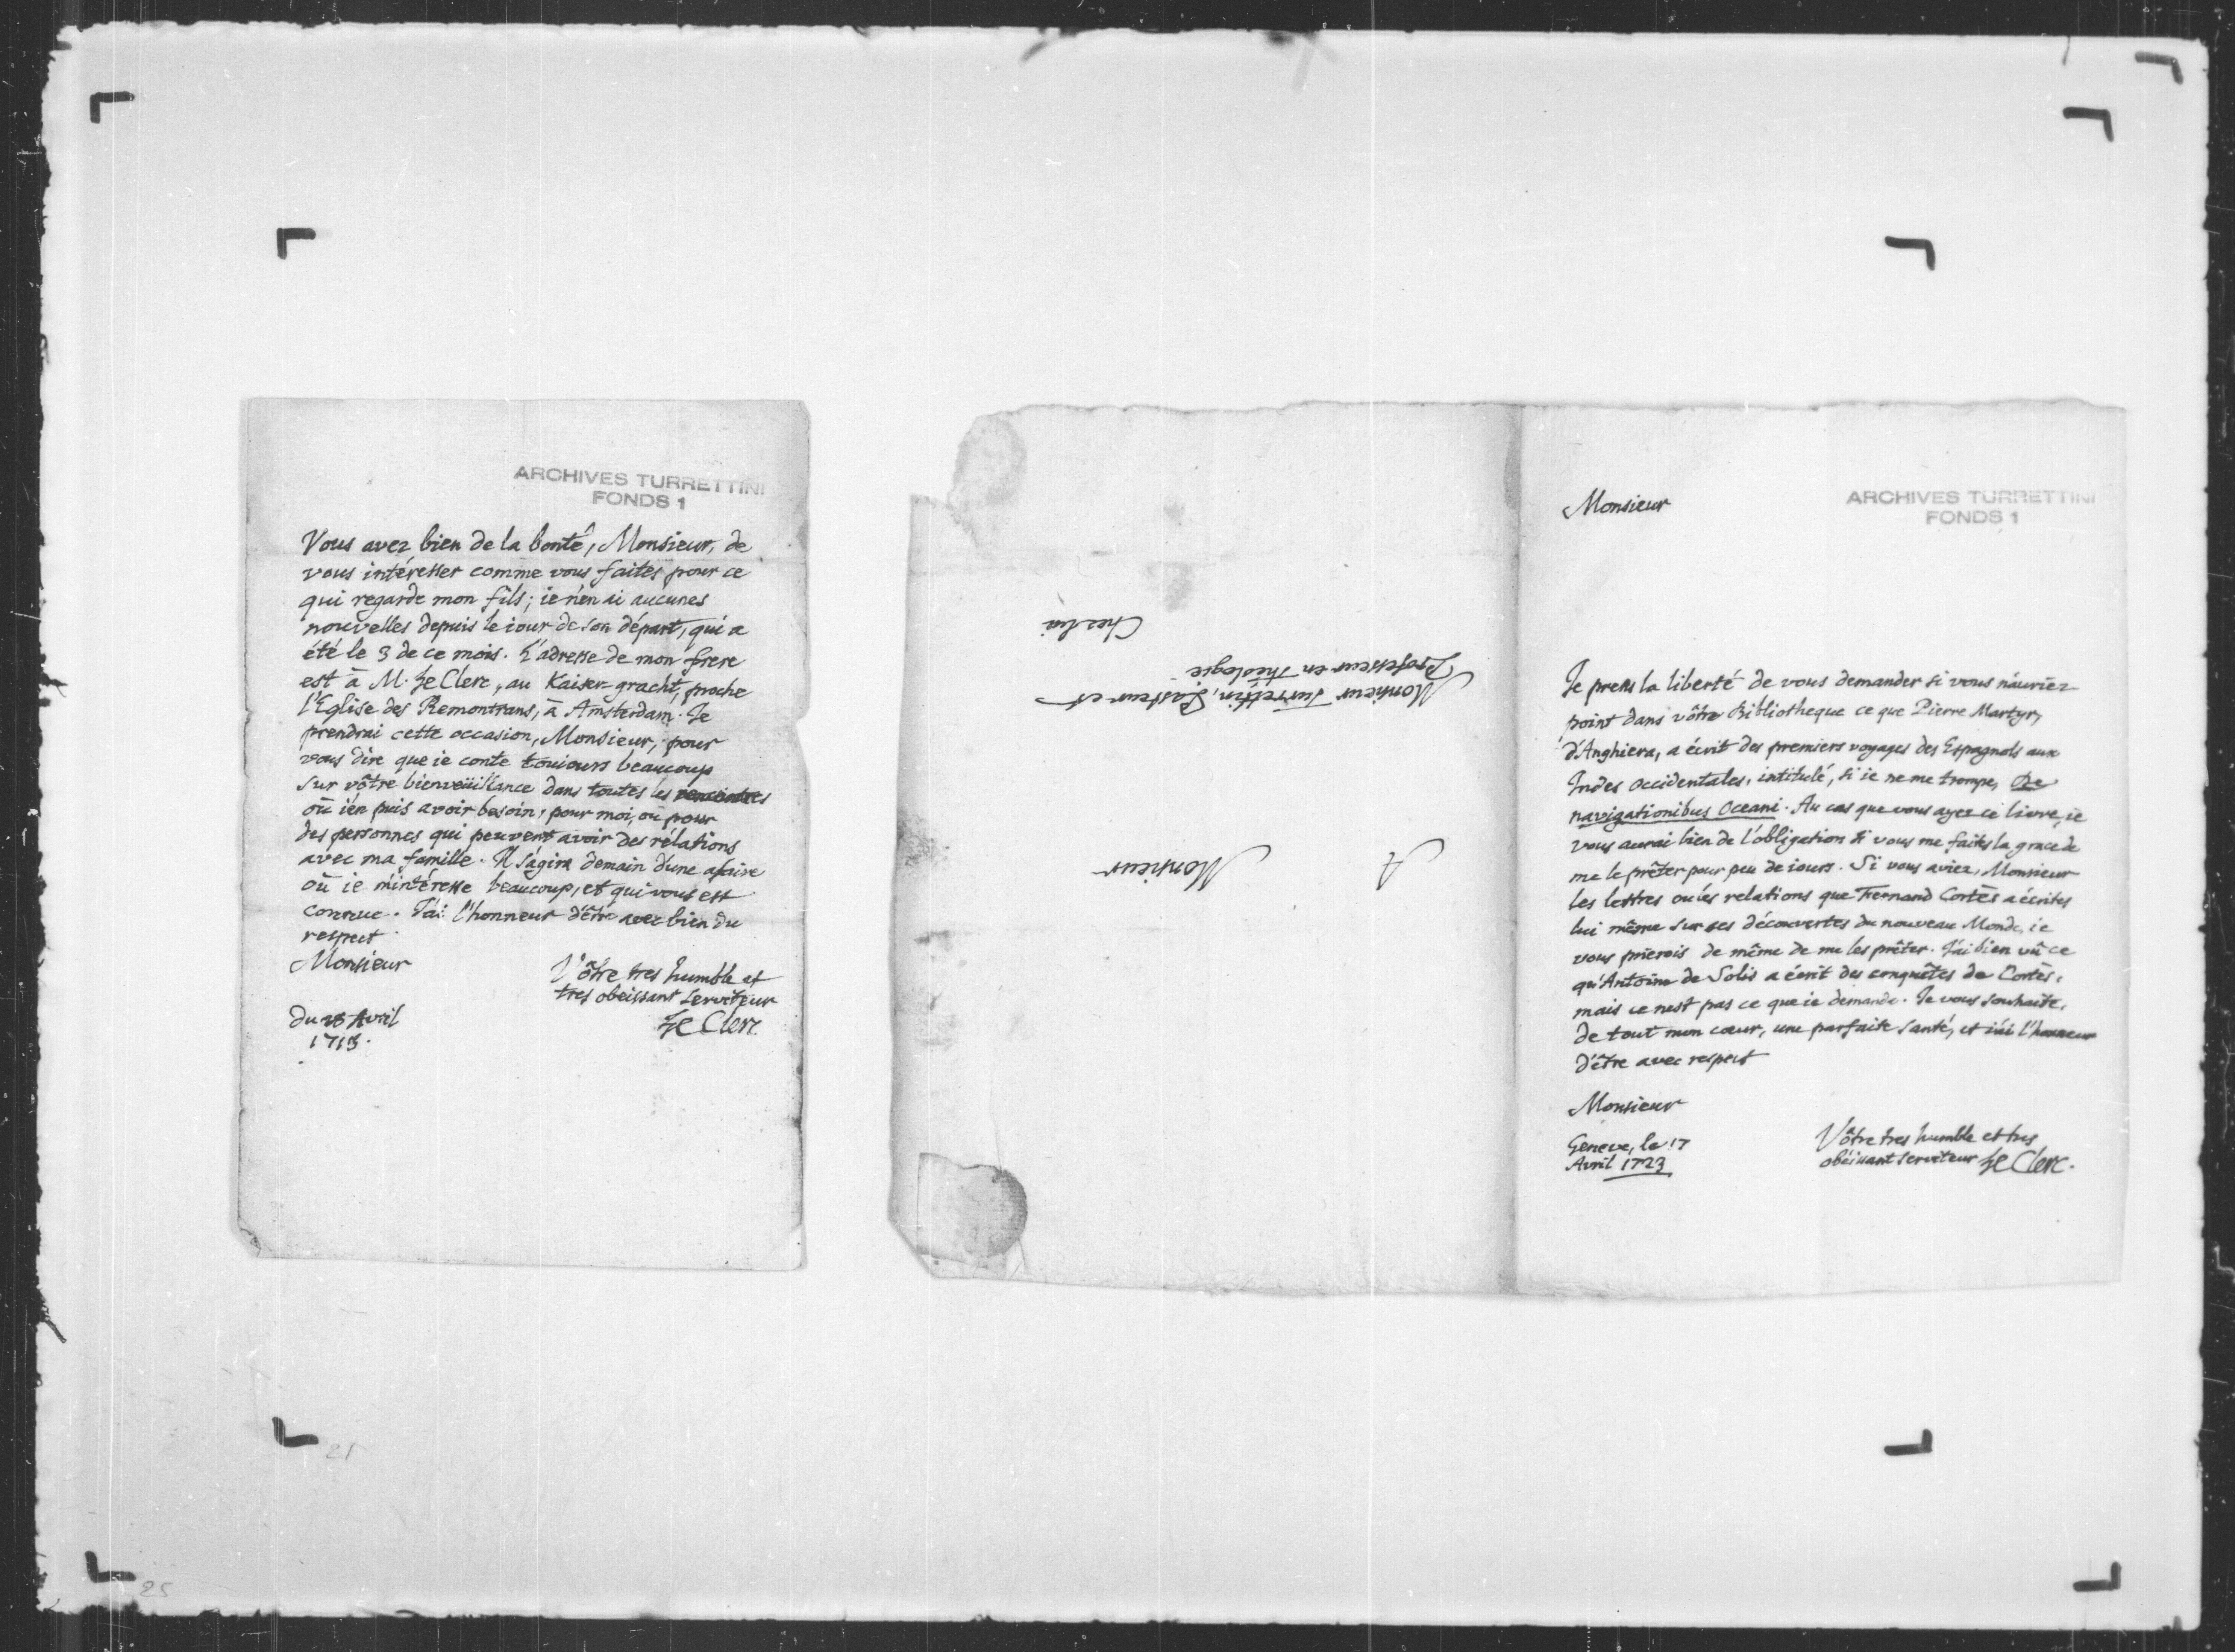 ARCHIVES TURRETTINI
FONDS 1
Vous avez bien de la bonté, Monsieur, de
vous intéresser comme vous faites pour ce
qui regarde mon fils; ie n'en ai aucunes
nouvelles depuis le iour de son départ, qui a
été le 3 de ce mois. L'adresse de mon frere
est à M. Le Clerc, au Kaiser-gracht, proche
l'Eglise des Remontrans, à Amsterdam. Je
prendrai cette occasion, Monsieur, pour
vous dire que ie conte touiours beaucoup
sur vôtre bienveüillance dans toutes les rencontres
où i'en puis avoir besoin, pour moi, ou pour
des personnes qui peuvent avoir des rélations
avec ma famille. Il s'agira demain d'une afaire
où ie m'intéresse beaucoup, et qui vous est
connue. J'ai l'honneur d'être avec bien du
respect
Monsieur
Vôtre tres humble et
tres obeissant serviteur
Le Clerc
du Avril
1713.
A
Monsieur
Monsieur Turrettin, Pasteur et
Professeur en Théologie
Chez lui
ARCHIVES TURRETTINI
FONDS 1
Monsieur
Je prens la liberté de vous demander si vous n'auriez
point dans vôtre Bibliotheque ce que Pierre Martyr,
d'Anghiera, a écrit des premiers voyages des Espagnols aux
Indes Occidentales, intitulé, si ie ne me trompe, De
navigationibus Oceani. Au cas que vous ayez ce livre, ie
vous aurai bien de l'obligation si vous me faites la grace de
me le prêter pour peu de iours. Si vous aviez, Monsieur
les lettres ou les relations que Fernand Cortès a écrites
lui même sur ses découvertes du nouveau Monde, ie
vous prierois de même de me les prêter. J'ai bien vû ce
qu'Antoine de Solis a écrit des conquêtes de Cortès,
mais ce n'est pas ce que ie demande. Je vous souhaite,
de tout mon cœur, une parfaite santé, et i'ai l'honneur
d'être avec respect
Monsieur
Geneve, le 17
Avril 1723
Vôtre tres humble et tres
obéissant serviteur Le Clerc.
21
25